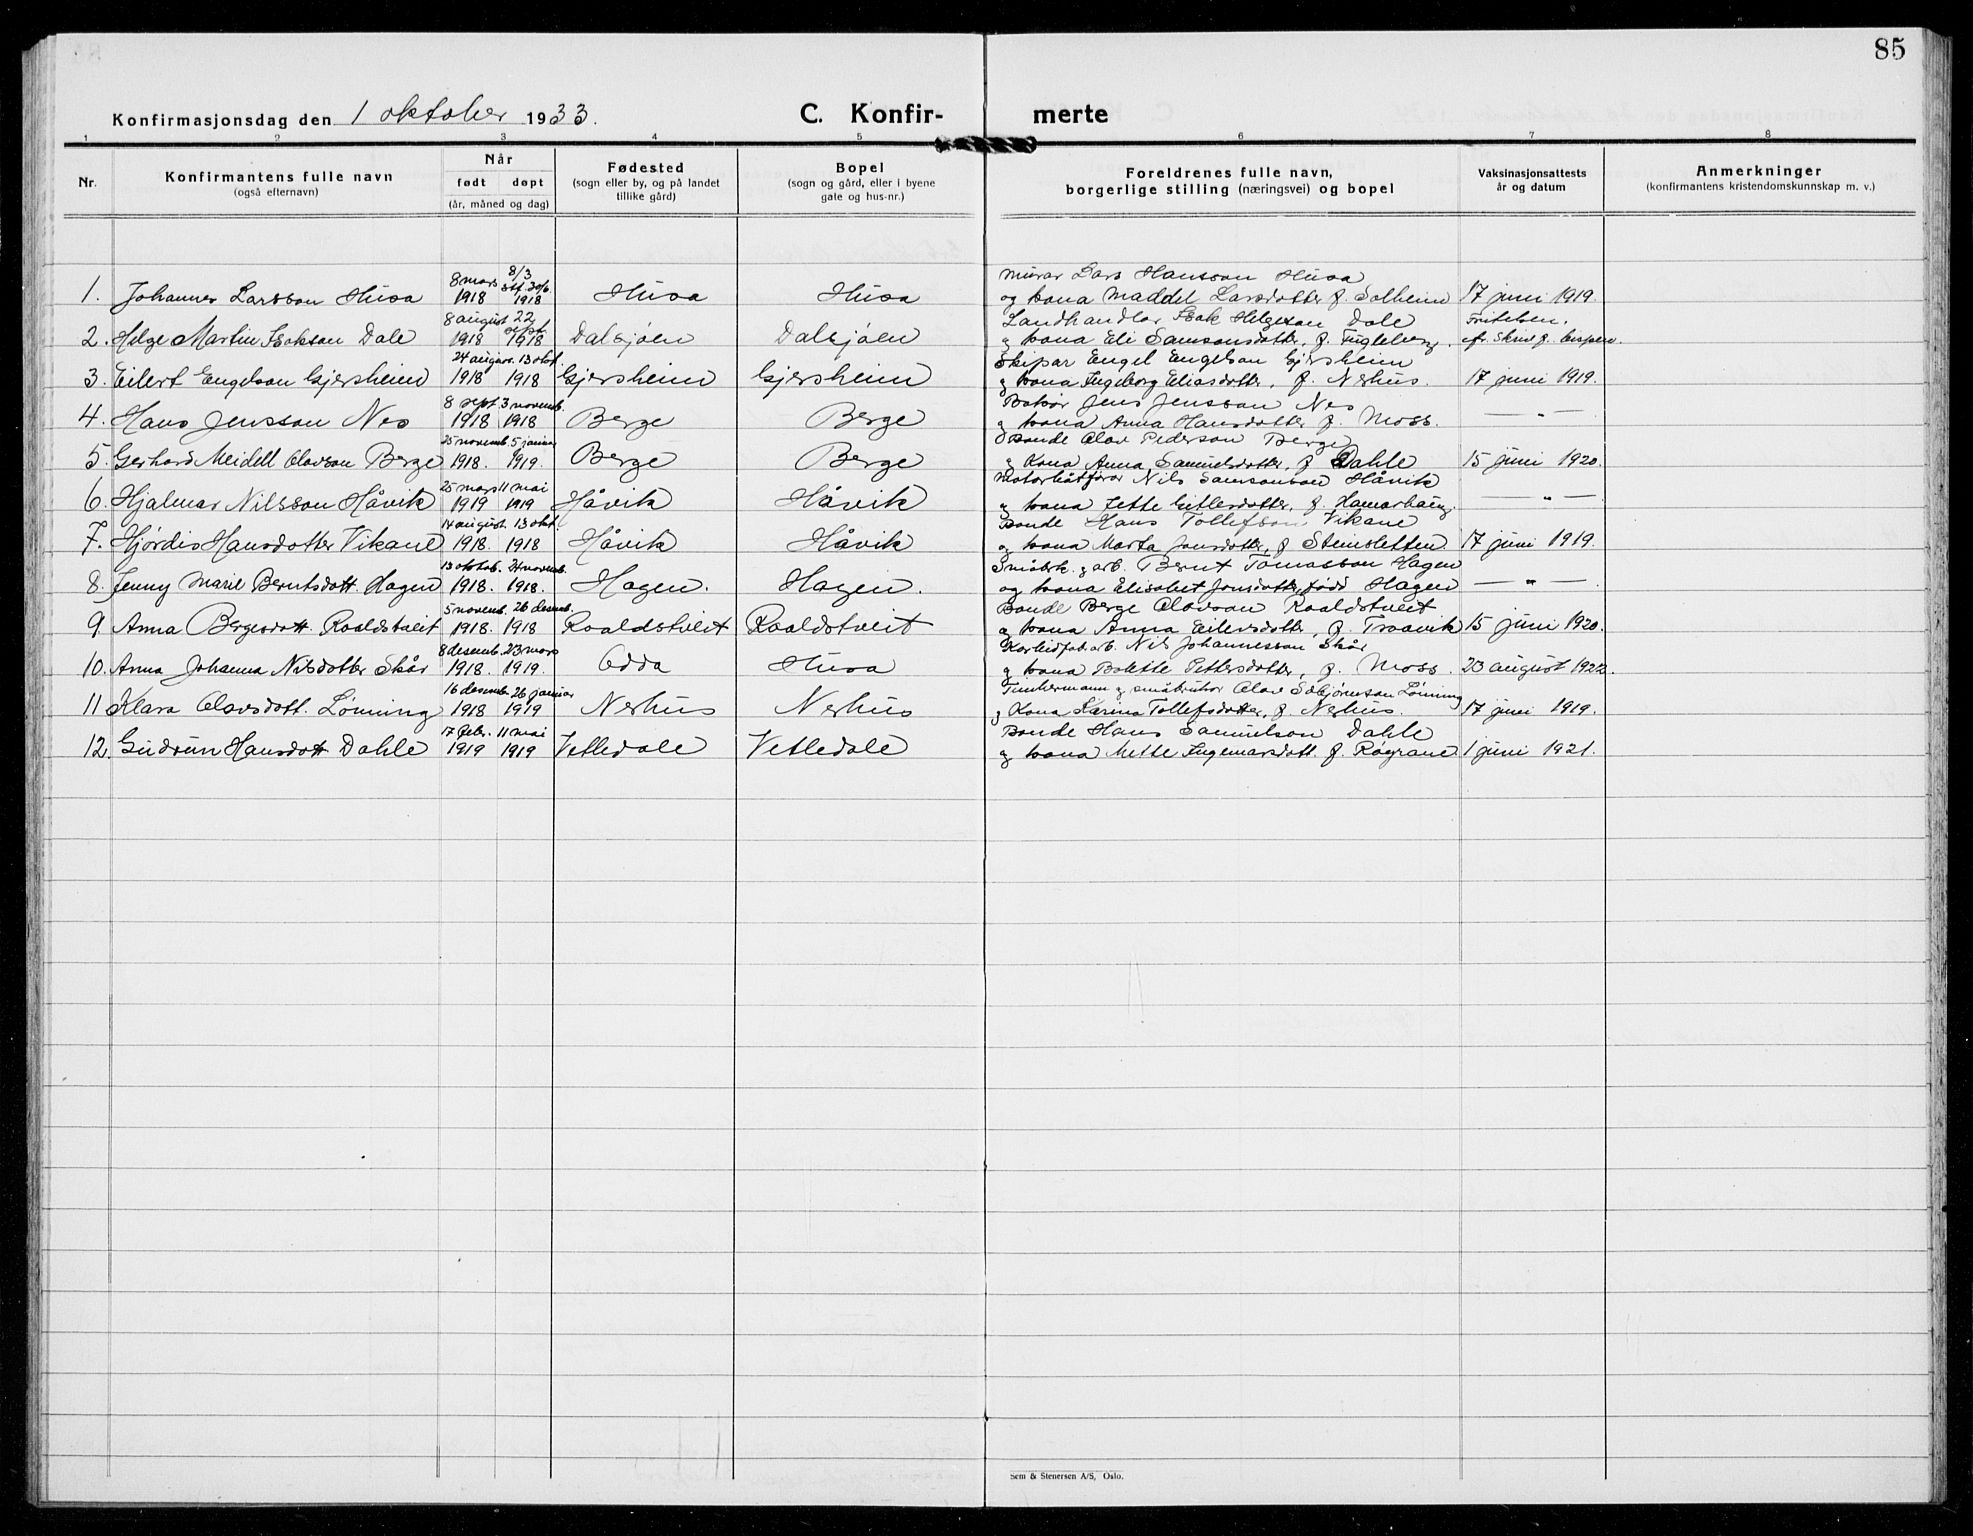 85
Konfirmasjonsdag den 1 oktober 1933. C. Konfir- merte
1 2 3 4 5 6 7 8
Nr. Konfirmantens fulle navn (også efternavn) Når født døpt (år, måned og dag) Fødested (sogn eller by, og på landet tillike gård) Bopel (sogn og gård, eller i byene gate og hus-nr.) Foreldrenes fulle navn, borgerlige stilling (næringsvei) og bopel Vaksinasjonsattests år og datum Anmerkninger (konfirmantens kristendomskunnskap m. v.)
8 mars 8/3 Murar Lars Hansson Husa
1. Johannes Larsson Husa 1918 1918 Husa Husa og kona Maddel Larsdotter f. Solheim 17 juni 1919.
8 august 22 sept Landhandlar Isak Helgeson Dale Friteken.
2. Helge Martin Isakson Dale 1918 1918 Dalsjøen Dalsjøen og kona Eli Samsonsdotter, f. Fugleberg.
24 august. 13 okt. Skipar Engel Engelson Gjersheim
3. Eilert Engelson Gjersheim 1918 1918 Gjersheim Gjersheim og kona Ingeborg Eliasdotter, f. Nerhus. 17 juni 1919.
8 sept 3 novemb. Jens Jensson Nes
4. Hans Jensson Nes 1918 1918 Berge Berge og kona Anna Hansdotter f. Moss. — „ —
25 novemb. 5 januar Bonde Olav Pederson Berge
5. Gerhard Meidell Olavson Berge 1918. 1919. Berge Berge og Kona Anna Samuelsdotter, f Dahle 15 juni 1920.
25 mars 11 mai Motorbåtførar Nils Samsonson Håvik
6. Hjalmar Nilsson Håvik 1919 1919 Håvik Håvik og kona Jette Gitlesdotter, f. Hamarhaug. — „ —
14 august. 13 okt. Bonde Hans Tollefson Vikane
7. Hjørdis Hansdotter Vikane 1918. 1918 Håvik Håvik og kona Marta Jonsdotter, f Steinsletten 17 juni 1919.
13 oktob. 24 novemb. Småbrk. og arb. Bernt Tomasson Hagen
8. Jenny Marie Berntsdott. Hagen 1918. 1918. Hagen. Hagen. og kona Elisabet Jonsdotter, fødd Hagen — „ —
5 novemb. 26 desemb. Bonde Berge Olavson Raaldstveit
9. Anna Bergesdott. Raaldstveit 1918. 1918 Raaldstveit Raaldstveit og kona Anna Eilevsdotter, f. Traavik 15 juni 1920.
8 desemb. 23 mars Karbidfab.arb. Nils Johannesson Skår
10. Anna Johanna Nilsdotter Skår 1918. 1919. Odda Husa og kona Bolette Pettersdotter, f. Moss. 23 august 1922.
16 desemb. 26 januar Timbermann og småbrukar Olav Sæbjørnson Lønning
11 Klara Olavsdott. Lønning 1918 1919 Nerhus Nerhus og Kona Karina Tollefsdotter, f. Nerhus. 17 juni 1919.
17 febr. 11 mai Bonde Hans Samuelson Dahle
12. Gudrun Hansdott Dahle 1919 1919 Vetledale Vetledale og kona Mette Ingemarsdott. f. Røgrane 1 juni 1921.
Sem & Stenersen A/S, Oslo.